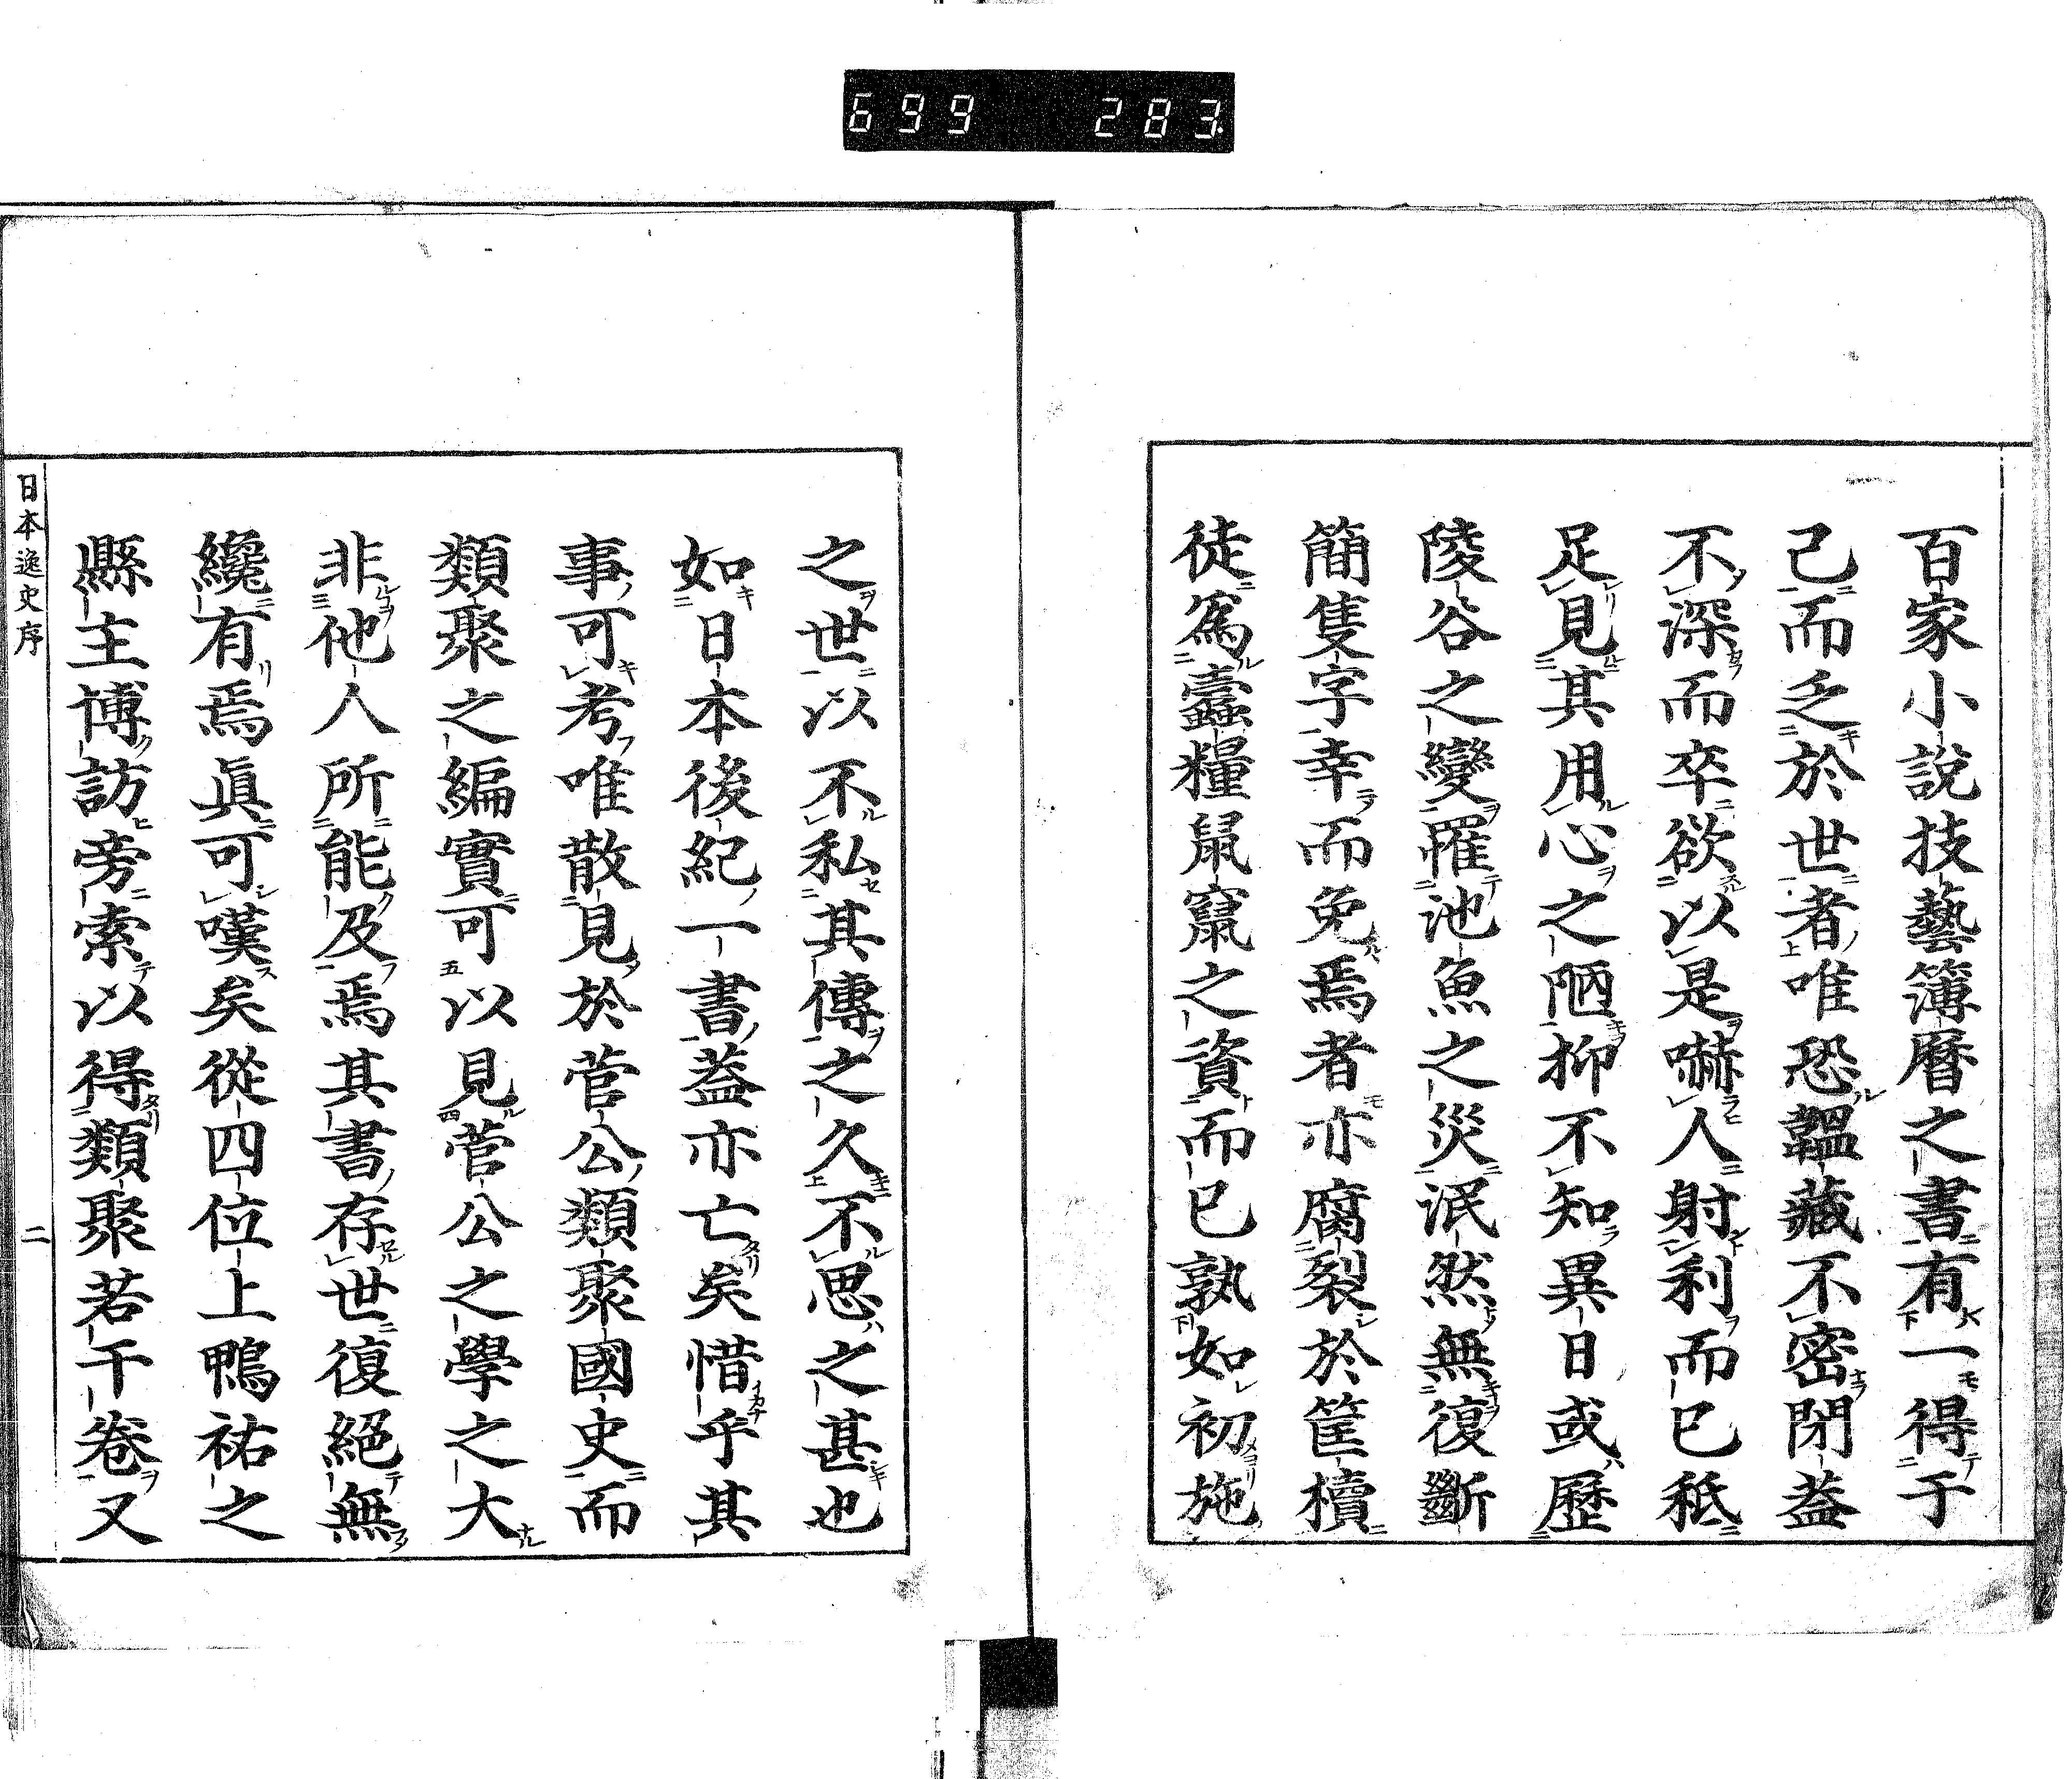 699 283
百家小說技藝簿曆之書有一得于
己而乏於世者唯恐韞藏不密閉蓋
不深而卒欲以是嚇人射利而已秪
足見其用心之陋抑不知異日或歷
陵谷之變罹池魚之災泯然無復斷
簡隻字幸而免焉者亦腐裂於筐櫝
徒爲蠹糧鼠竄之資而已孰如初施
之世以不私其傳之久不思之甚也
如日本後紀一書蓋亦亡矣惜乎其
事可考唯散見於菅公類聚國史而
類聚之編實可以見菅公之學之大
非他人所能及焉其書存世復絕無
纔有焉眞可嘆矣從四位上鴨祐之
縣主博訪旁索以得類聚若干卷又
日本逸史序 二